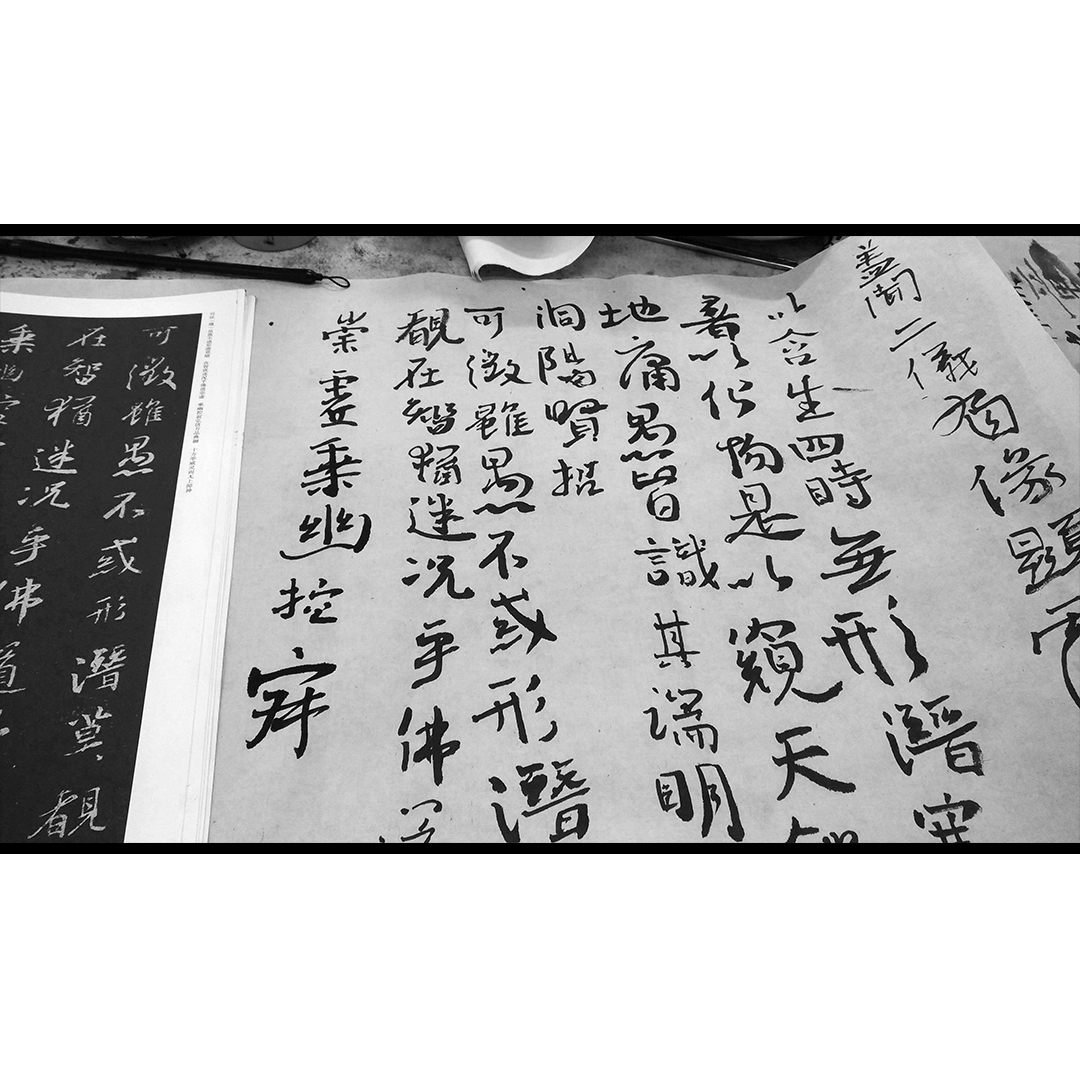 蓋聞二儀有像顯
以含生四時無形潛寒
暑以化物是以窺天
地庸愚皆識其端明
洞陽賢哲
可徵雖愚不惑形潛
覩在智猶迷況乎佛
崇虛乘幽控寂
可徵雖愚不惑形潛莫覩
在智猶迷況乎佛道
乘幽控